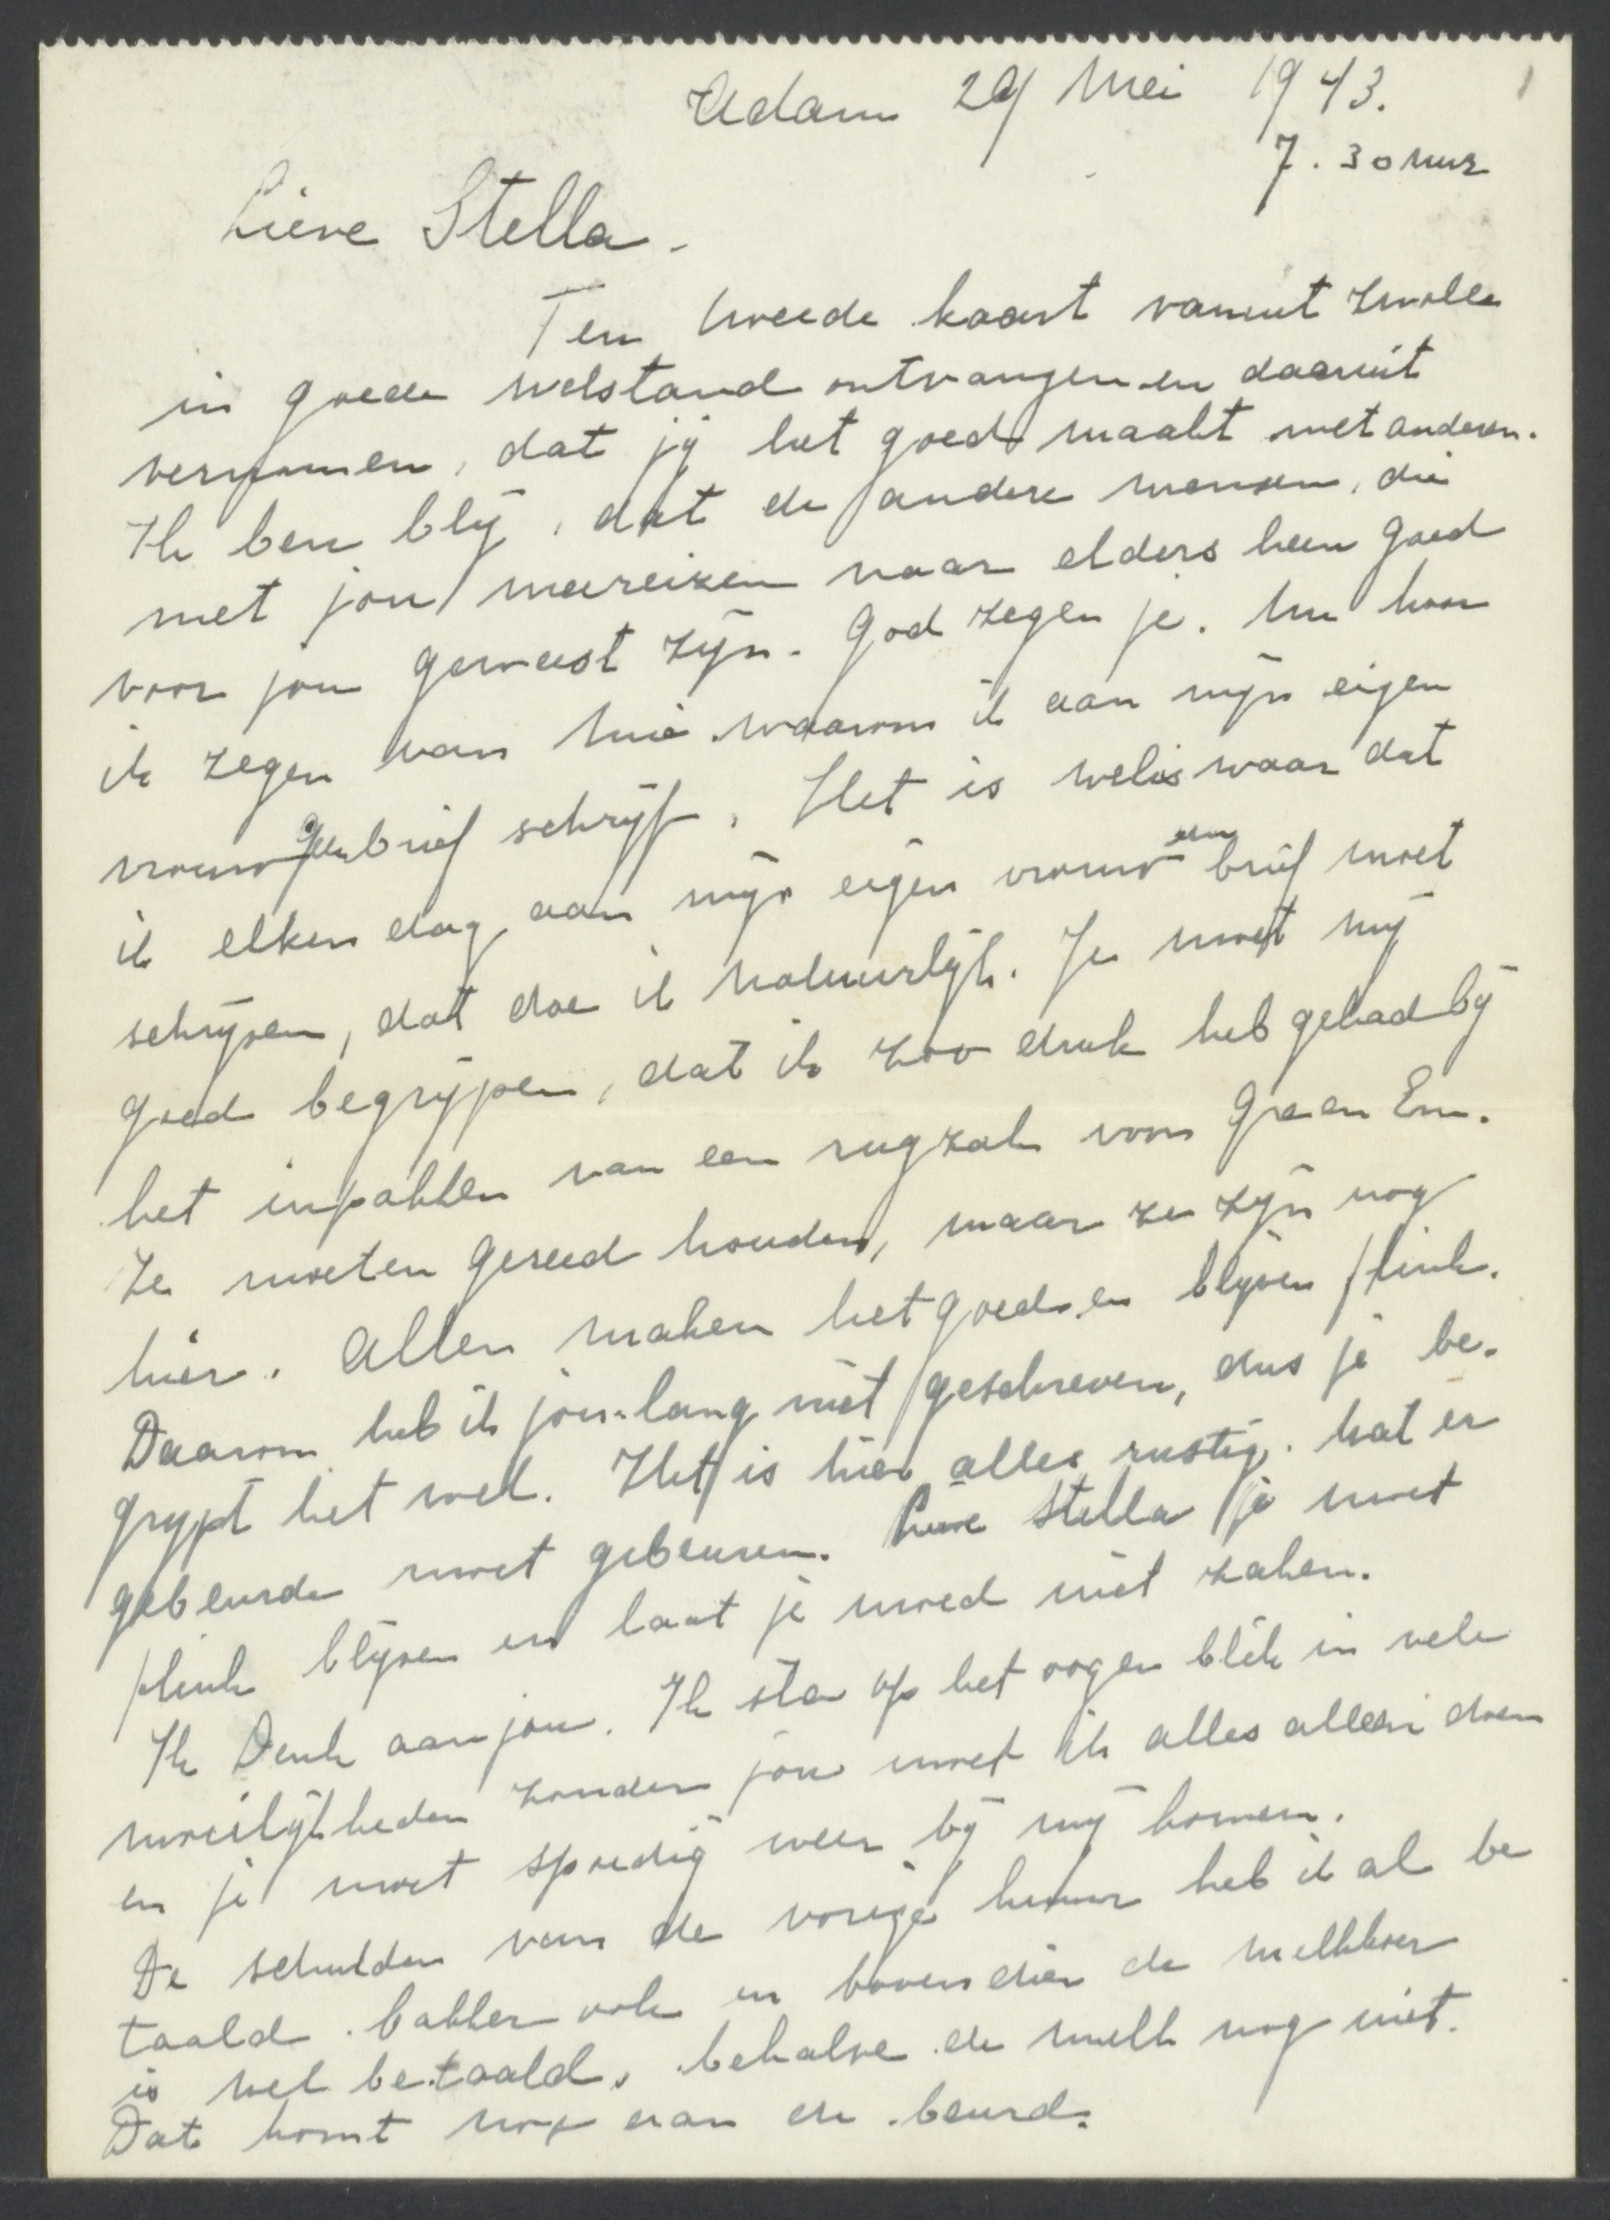 Adam 29 Mei 1943.
1
7.30 uur
Lieve Stella.
Ten tweede kaart vanuit Zwolle
in goede welstand ontvangen en daaruit
vernomen, dat jij het goed maakt met anderen.
Ik ben blij, dat de andere mensen, die
met jou meereizen naar elders heen goed
voor jou geweest zijn. God zegen je. Nu hoor
ik zegen van Mie waarom ik aan mijn eigen
vrouw geen brief schrijf. Het is weliswaar dat
ik elken dag aan mijn eigen vrouw een brief moet
schrijven, dat doe ik natuurlijk. Je moet mij
goed begrijpen, dat ik zoo druk heb gehad bij
het inpakken van een rugzak voor G en Em.
Ze moeten gereed houden, maar ze zijn nog
hier. Allen maken het goed en blijven flink.
Daarom heb ik jou lang niet geschreven, dus je be-
grijpt het wel. Het is hier alles rustig. Wat er
gebeurde moet gebeuren. Lieve Stella je moet
flink blijven en laat je moed niet zaken.
Ik Denk aan jou. Ik sta op het oogen blik in vele
moeilijkheden zonder jou moet ik alles alleen doen
en je moet spoedig weer bij mij komen.
De schulden van de vorige huur heb ik al be
taald. bakker ook en bovendien de melkboer
is wel betaald, behalve de melk nog niet.
Dat komt nog aan de beurd.